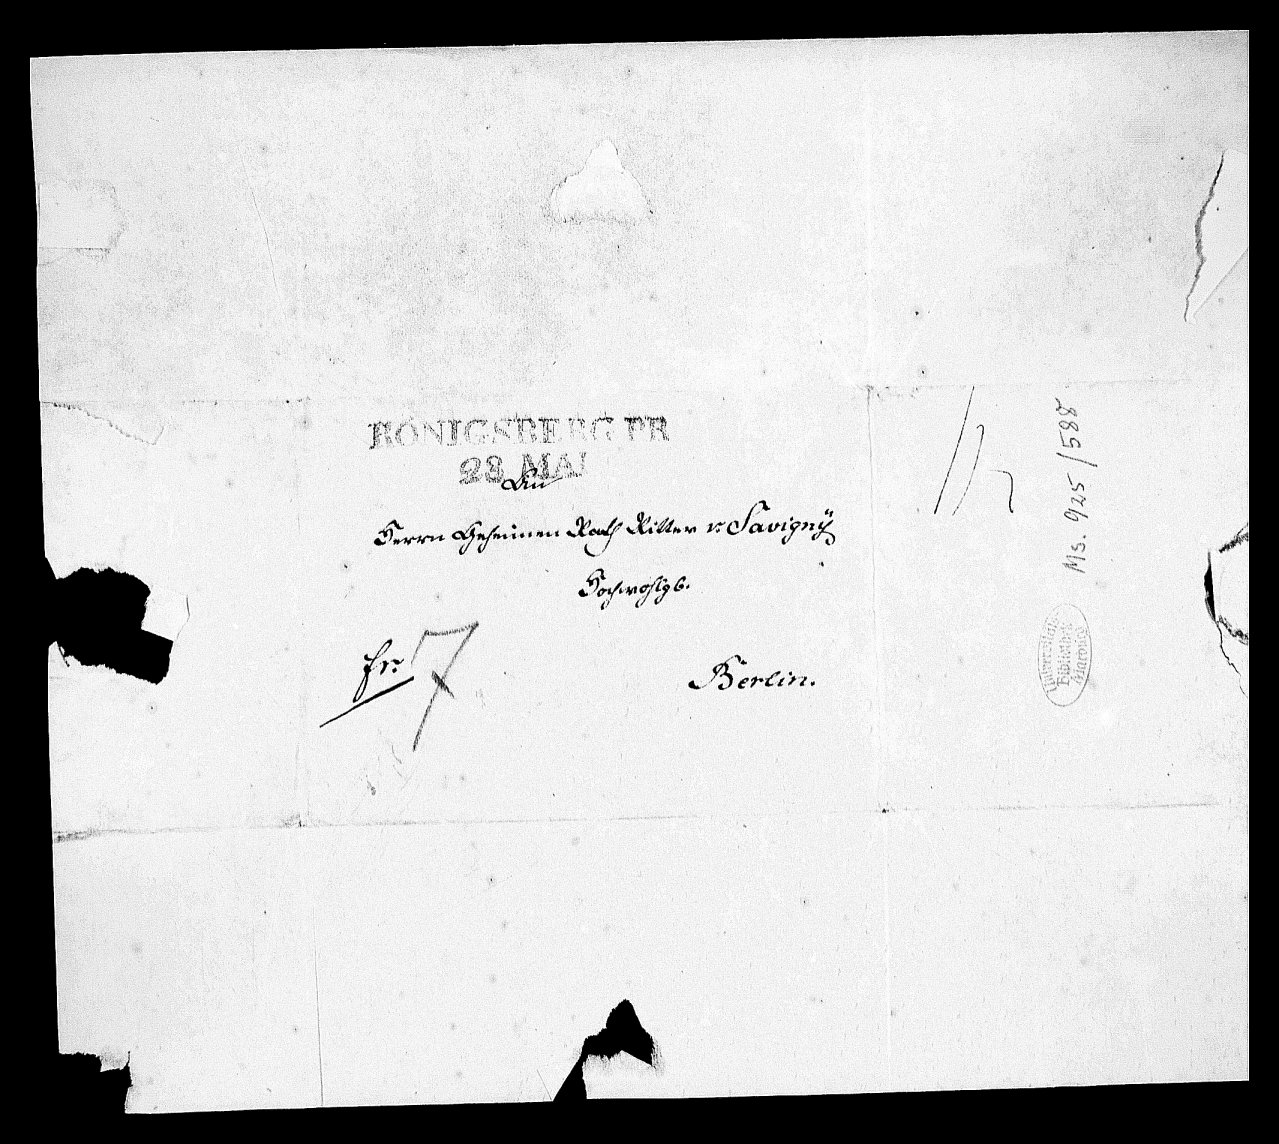 KÖNIGSBERG PR
28 MAI
An
Herrn Geheimen Rath Ritter v. Savigny
Hochwohlgb.
fr. 7
Berlin.
Ms. 925/588
Universitäts
Bibliothek
Marburg